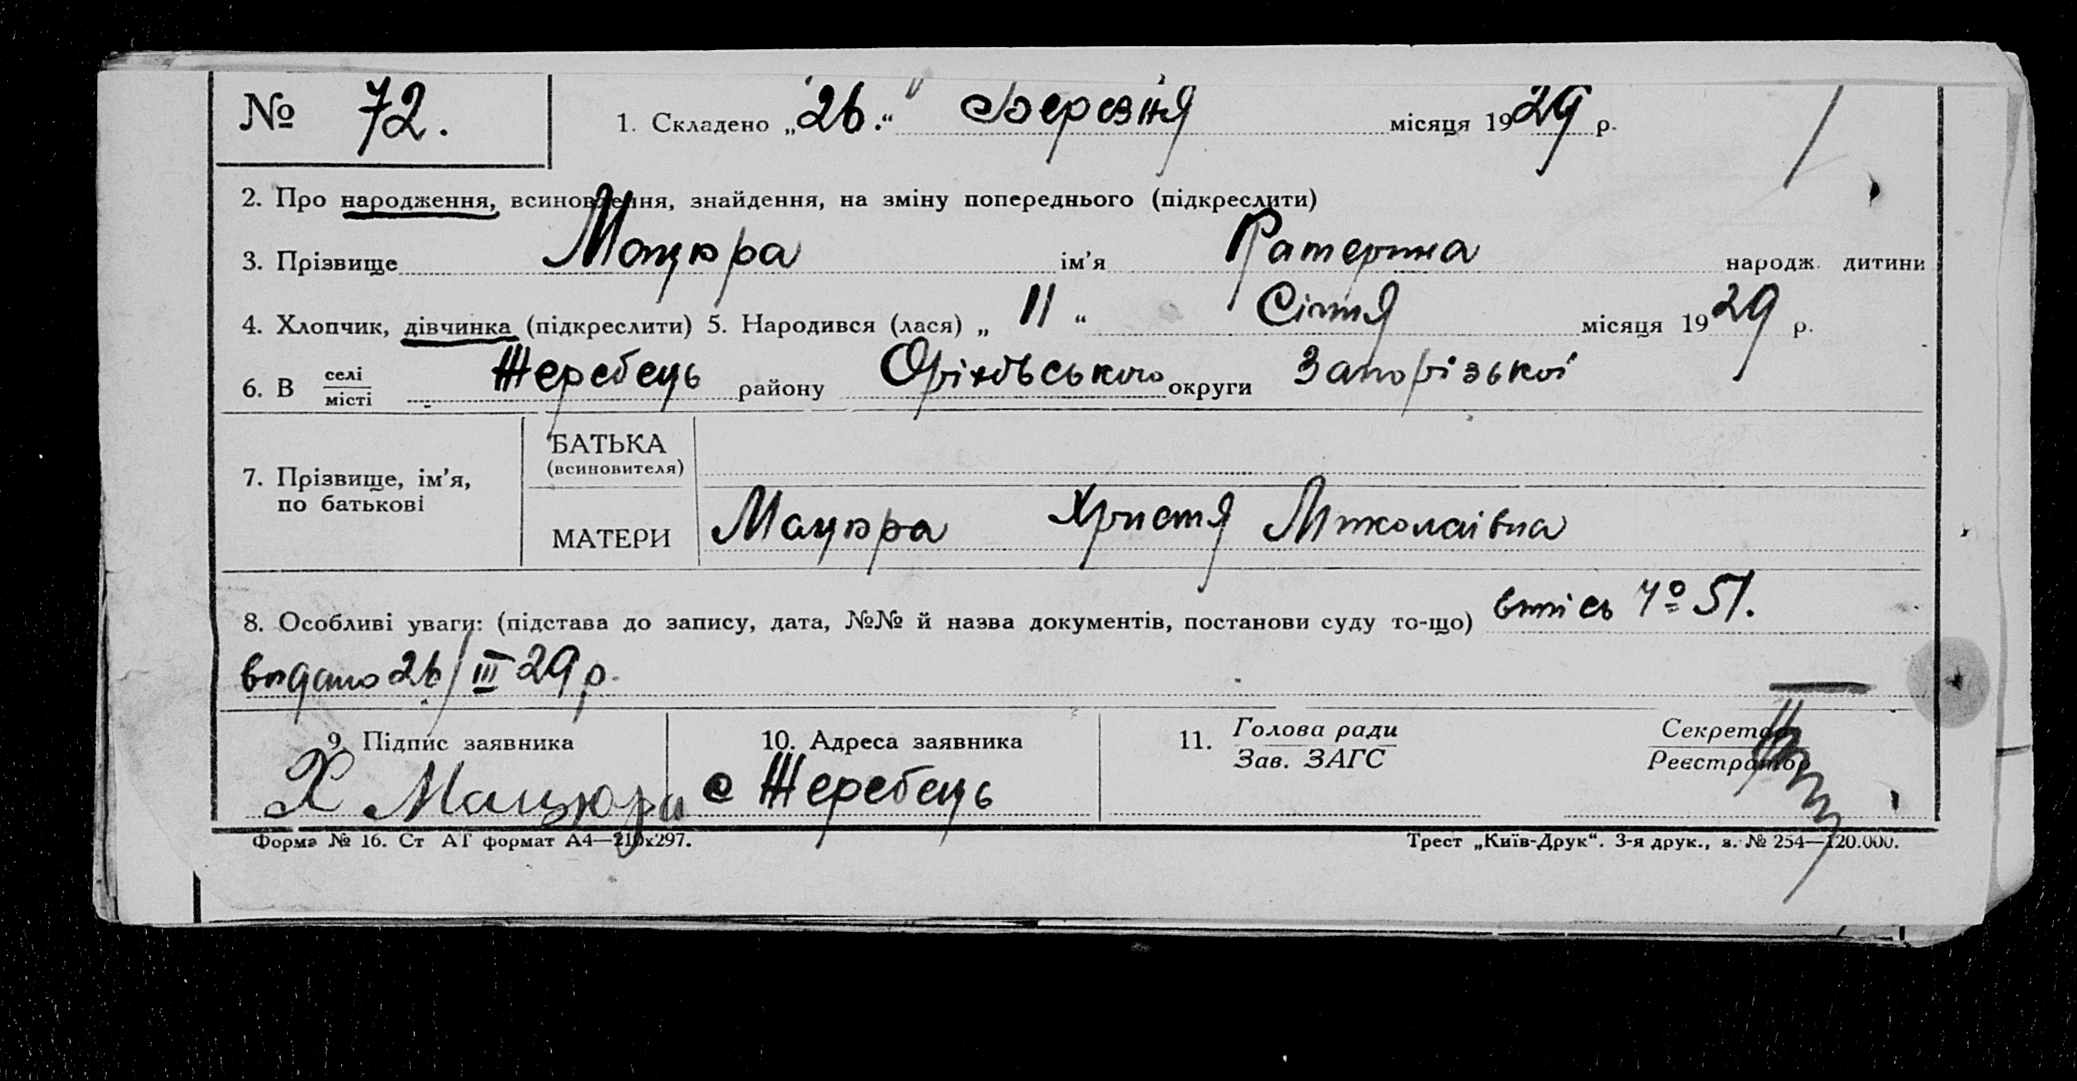 № 72.
1. Складено „26.“ Березня місяця 1929 р.
2. Про народження, всиновлення, знайдення, на зміну попереднього (підкреслити)
3. Прізвище Мацюра ім’я Катерина народж. дитини
4. Хлопчик, дівчинка (підкреслити) 5. Народився (лася) „ 11 “ Січня місяця 1929 р.
6. В селі місті Жеребець району Оріхівського округи Запорізької
7. Прізвище, ім’я, по батькові
БАТЬКА (всиновителя)
МАТЕРИ Мацюра Христя Миколаівна
8. Особливі уваги: (підстава до запису, дата, №№ й назва документів, постанови суду то-що) випісь № 51.
видано 26/III 29 р.
9. Підпис заявника
Х Мацюра
10. Адреса заявника
с Жеребець
11. Голова ради
Зав. ЗАГС
Секретар
Реєстратор
Форма № 16. Ст АГ формат А4—210х297.
Трест „Київ-Друк“. 3-я друк., з. № 254—120.000.